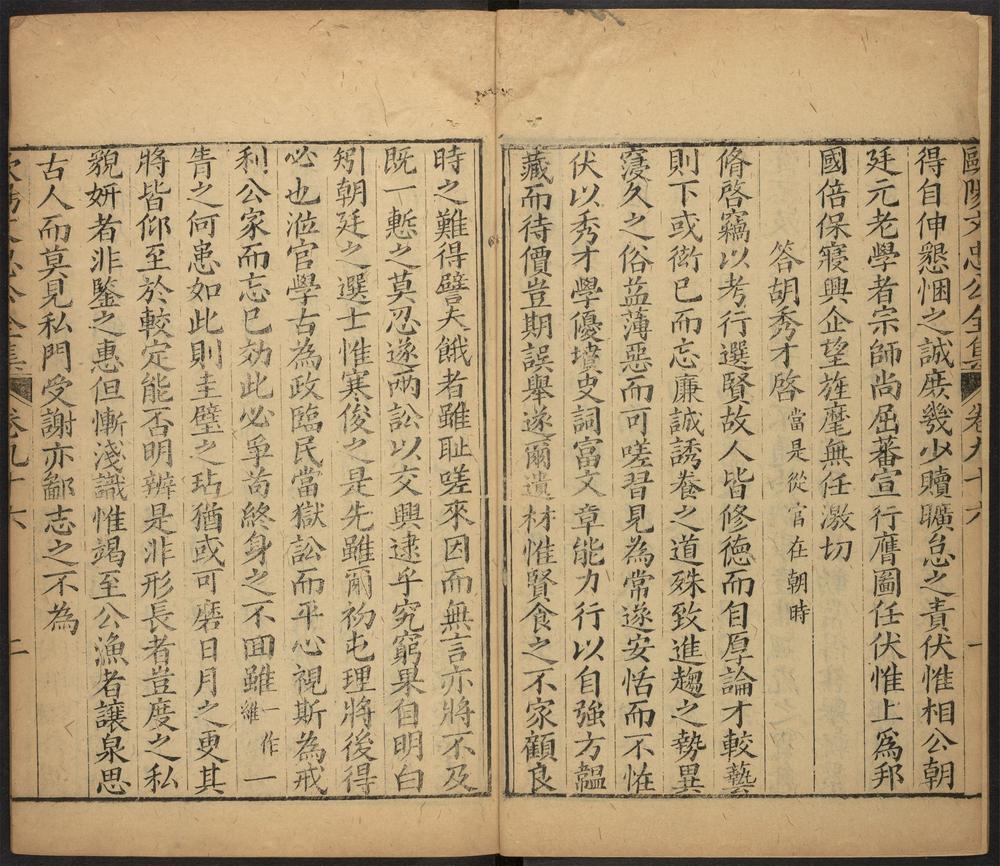 得自伸懇悃之誠庶幾少贖曠怠之責伏惟相公朝
廷元老學者宗師尚屈蕃宣行膺圖任伏惟上爲邦
國倍保寢興企望旌麾無任激切
答胡秀才啓 當是從官在朝時
脩啓竊以考行選賢故人皆修德而自厚論才較藝
則下或衒已而忘廉誠誘養之道殊致進趨之勢異
寖久之俗益薄惡而可嗟習見為常遂安恬而不恠
伏以秀才學優墳史詞富文章能力行以自強方韞
藏而待價豈期誤舉遂爾遺材惟賢食之不家顧良
時之難得譬夫餓者雖耻嗟來因而無言亦將不及
既一慙之莫忍遂兩訟以交興逮乎究窮果自明白
矧朝廷之選士惟寒俊之是先雖爾初屯理將後得
必也涖官學古為政臨民當獄訟而平心視斯為戒
利公家而忘已効此必爭苟終身之不囬雖一作雖一
眚之何患如此則圭璧之玷猶或可磨日月之更其
將皆仰至於較定能否明辨是非形長者豈度之私
貌妍者非鑒之惠但慚淺識惟竭至公漁者讓泉思
古人而莫見私門受謝亦鄙志之不為
歐陽文忠公全集 卷九十六 一
卷九十六 二